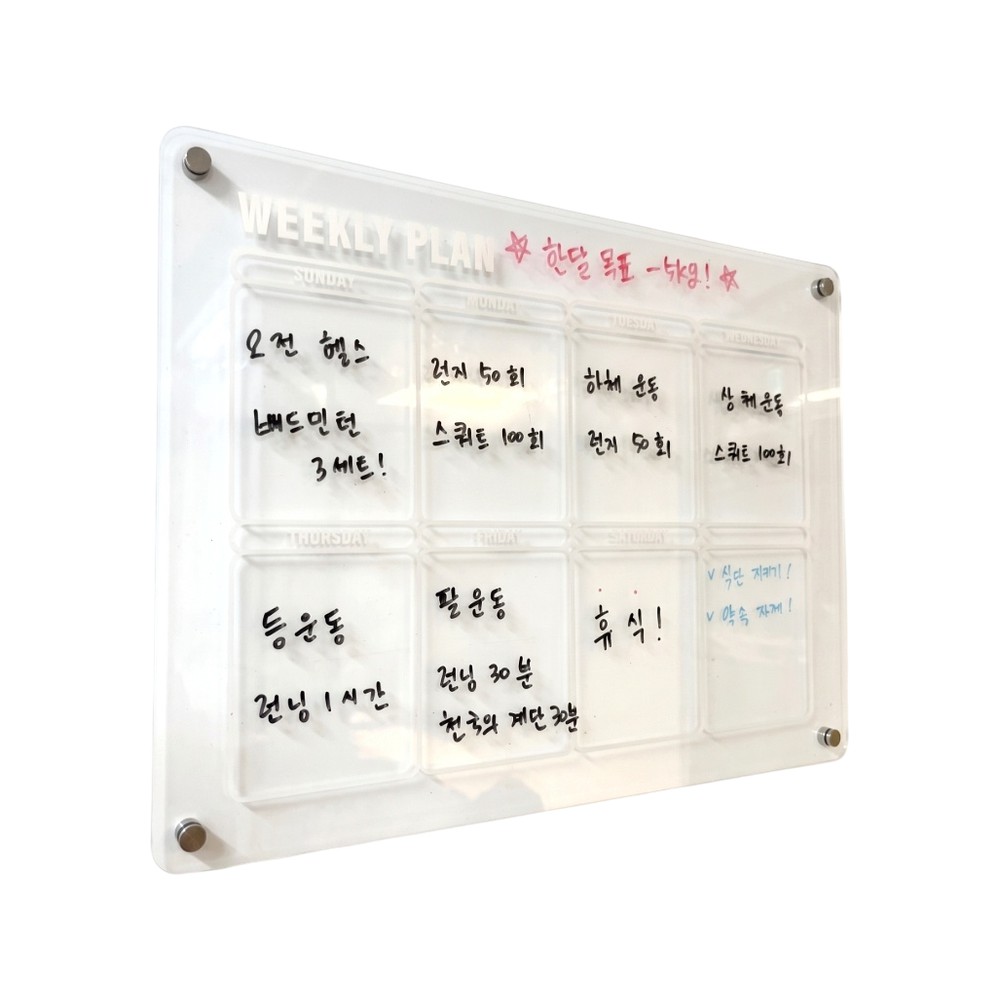 WEEKLY PLAN
☆ 한달 목표 -5kg! ☆
SUNDAY
오전 헬스
배드민턴
3세트!
MONDAY
런지 50회
스쿼트 100회
TUESDAY
하체 운동
런지 50회
WEDNESDAY
상체운동
스쿼트 100회
THURSDAY
등운동
런닝 1시간
FRIDAY
팔운동
런닝 30분
천국의 계단 30분
SATURDAY
휴식!
v 식단 지키기!
v 약속 자제!